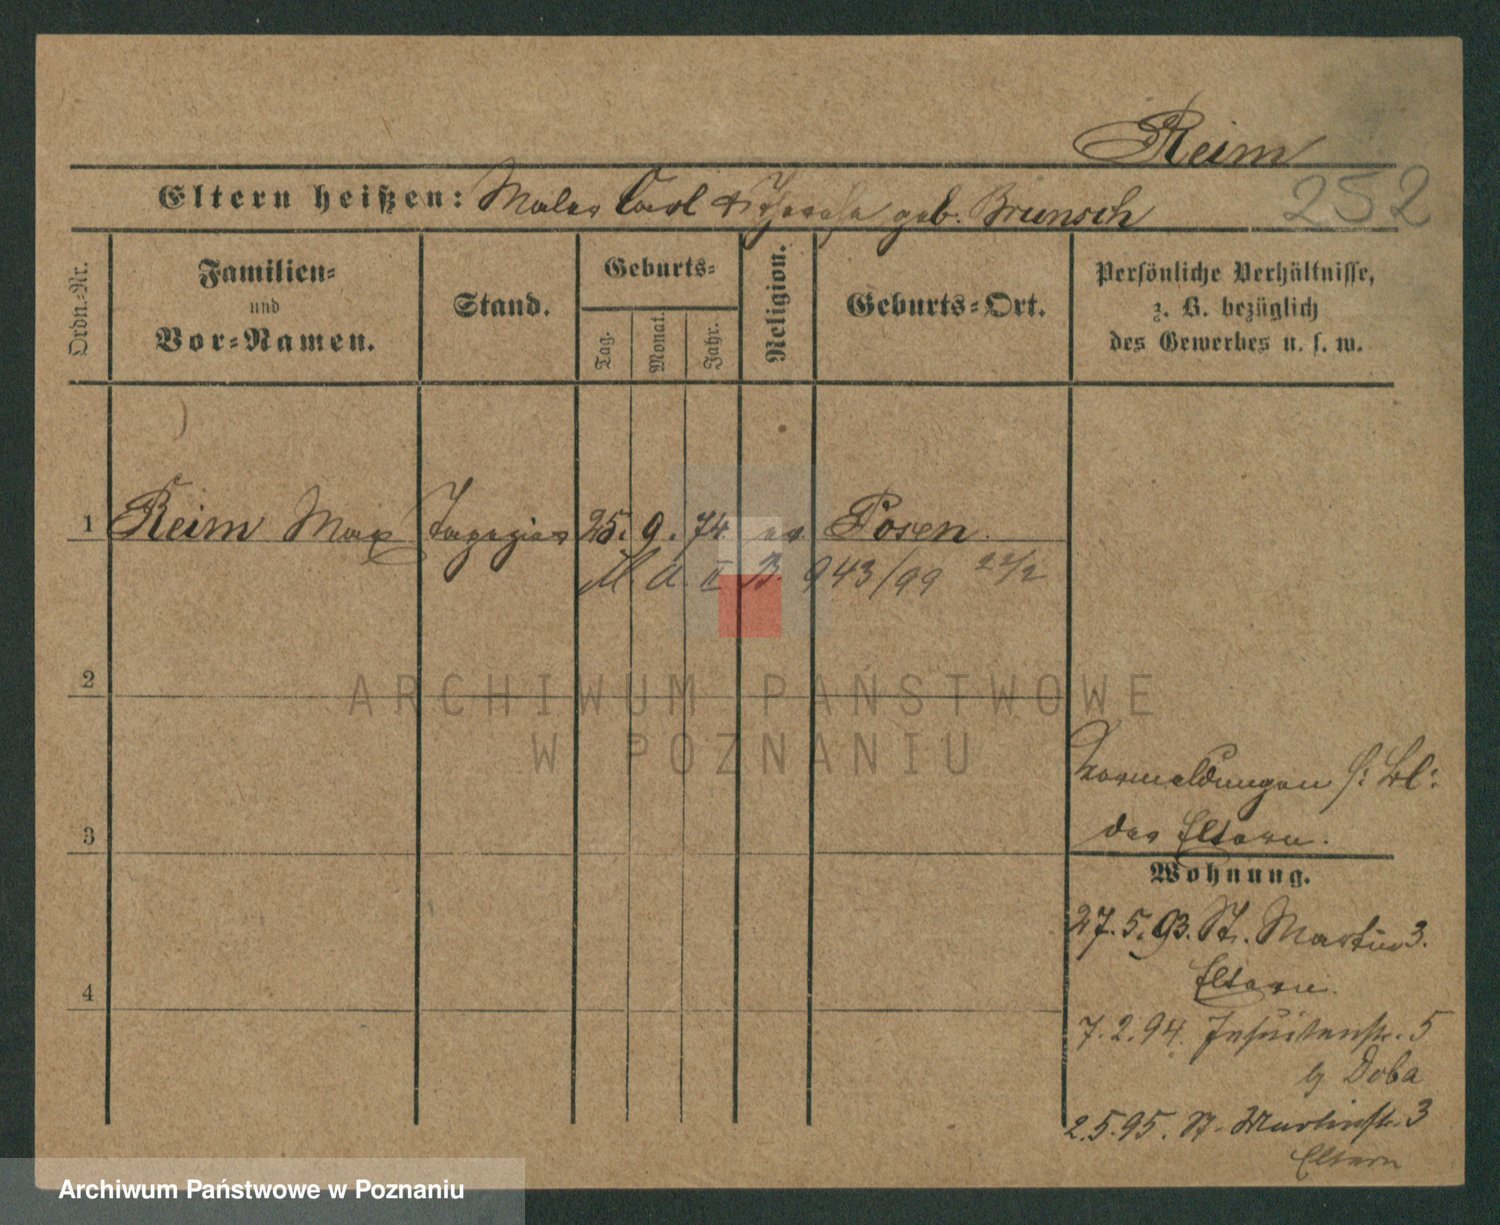 Reim
252
Eltern heißen: Maler Carl & Therese geb. Brunsch
Ordn.-Nr.
Familien-
und
Vor-Namen.
Stand.
Geburts-
Tag.
Monat.
Jahr.
Religion.
Geburts-Ort.
Persönliche Verhältnisse,
z. B. bezüglich
des Gewerbes u. s. w.
1 Reim Max Tapezier 25. 9. 74 ev. Posen.
M. A. II B. 943/99 22/2
2
3
4
Vormeldungen s: Bl:
der Eltern.
Wohnung.
27. 5. 93. St. Martin 3.
Eltern.
7. 2. 94. Jesuitenstr. 5
b Doba
2. 5. 95. St. Martinstr. 3
Eltern
ARCHIWUM PAŃSTWOWE
W POZNANIU
Archiwum Państwowe w Poznaniu